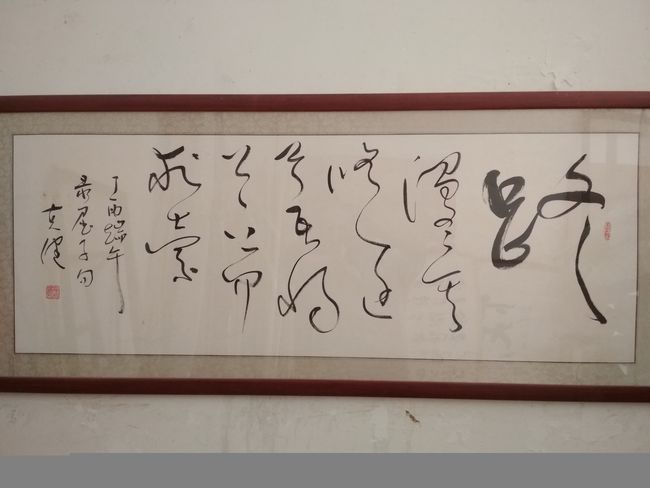 路
漫々其
修远
兮吾将
上下而
求索
丁酉端午
录屈子句